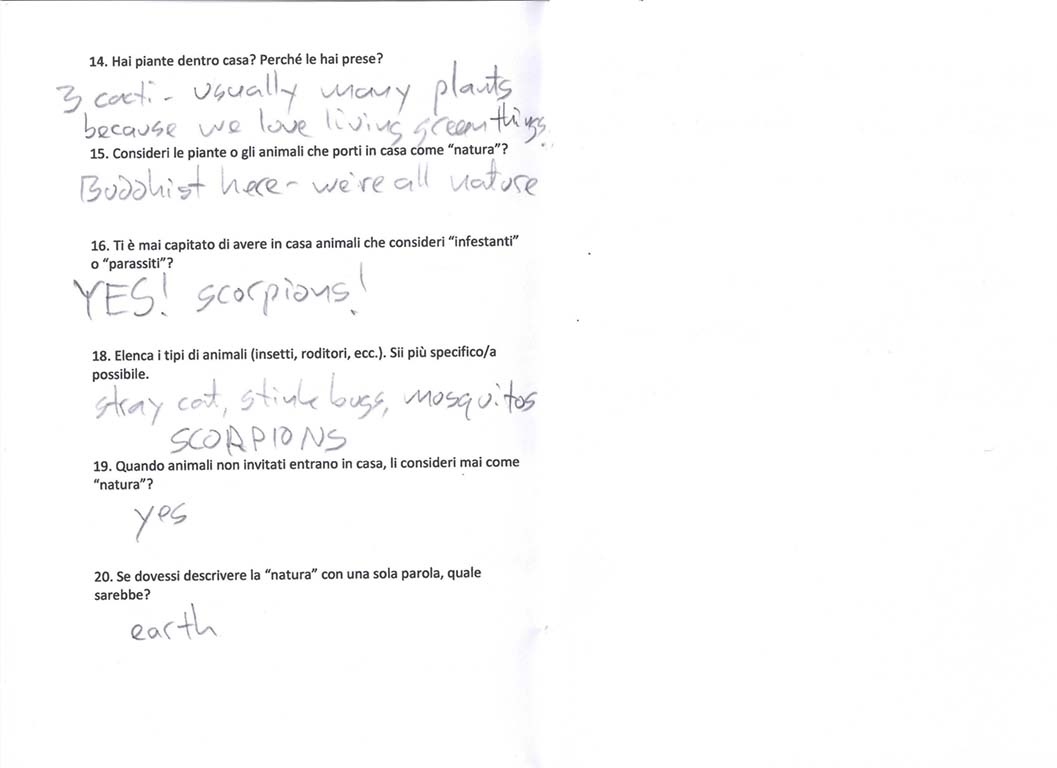 14. Hai piante dentro casa? Perché le hai prese?
3 cacti - usually many plants
because we love living green things.
15. Consideri le piante o gli animali che porti in casa come “natura”?
Buddhist here - we're all nature
16. Ti è mai capitato di avere in casa animali che consideri “infestanti”
o “parassiti”?
YES! scorpions!
18. Elenca i tipi di animali (insetti, roditori, ecc.). Sii più specifico/a
possibile.
stray cat, stink bugs, mosquitos
SCORPIONS
19. Quando animali non invitati entrano in casa, li consideri mai come
“natura”?
yes
20. Se dovessi descrivere la “natura” con una sola parola, quale
sarebbe?
earth